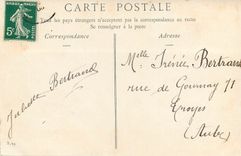 CARTE POSTALE
Tous les pays étrangers n'acceptent pas la correspondance au recto
Se renseigner à la poste
Correspondance
Adresse
5c
Juliette Bertrand
Melle Irénée Bertrand
rue de Gournay 71
Troyes
(Aube)